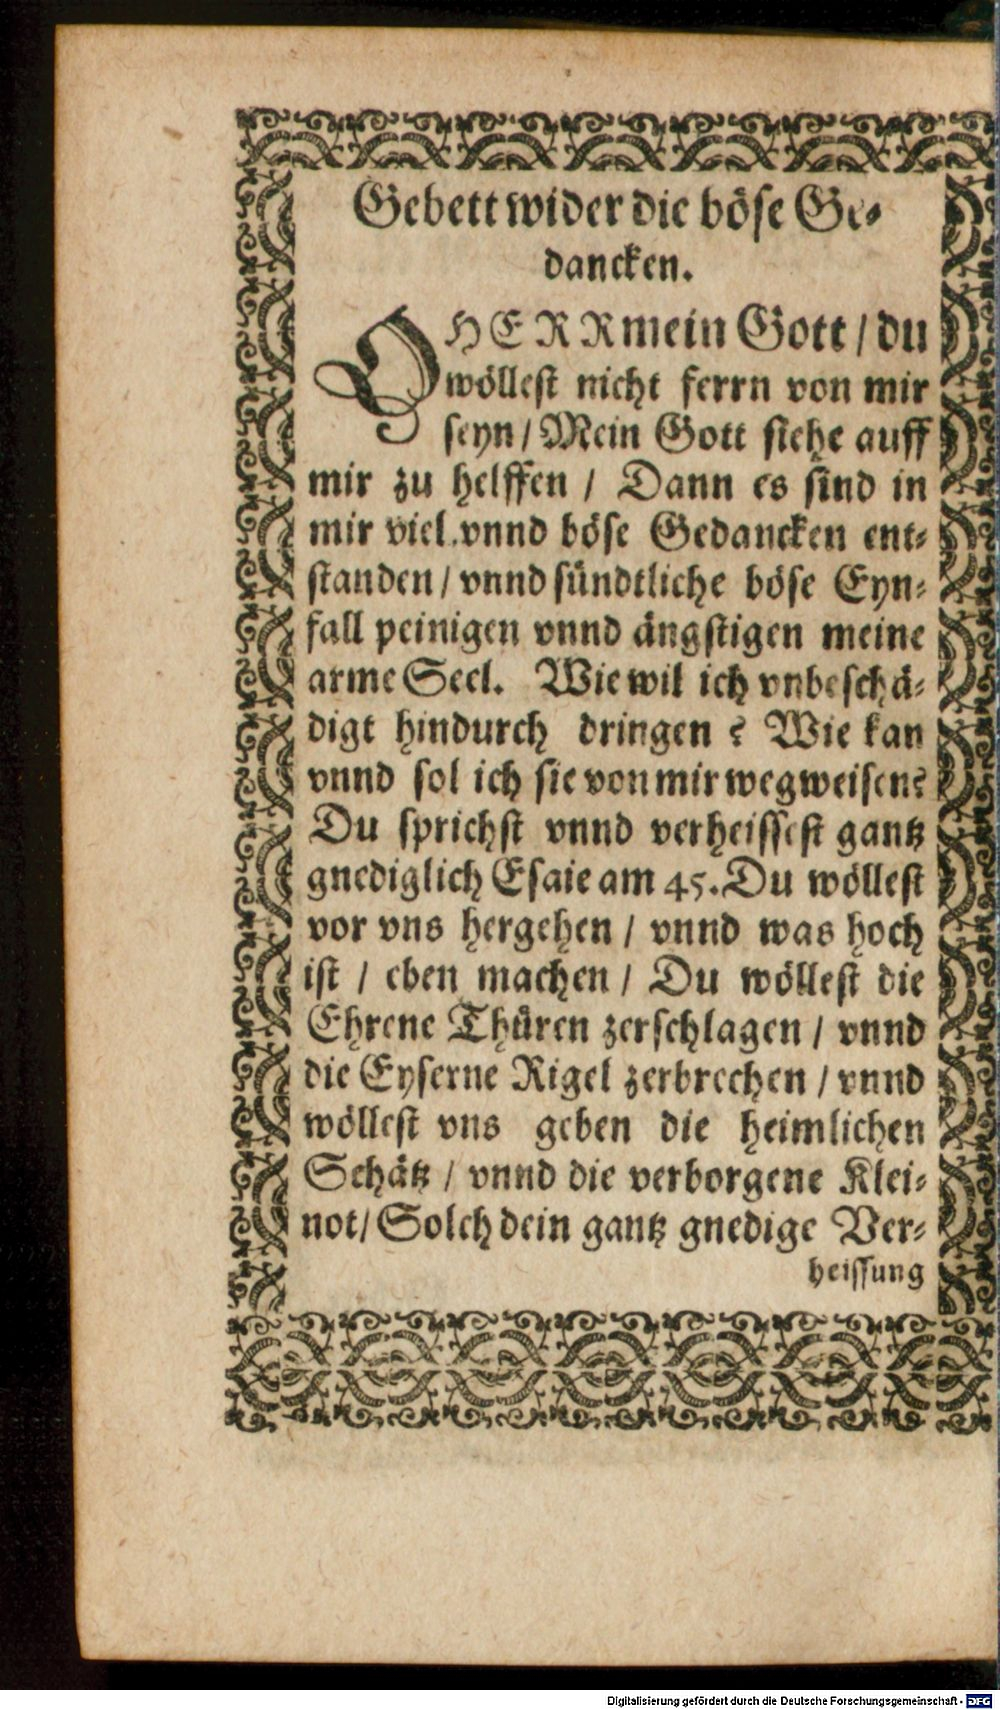 Gebett wider die böse Ge-
dancken.
O HERR mein Gott / du
wöllest nicht ferrn von mir
seyn / Mein Gott siehe auff
mir zu helffen / Dann es sind in
mir viel vnnd böse Gedancken ent-
standen / vnnd sündtliche böse Eyn-
fall peinigen vnnd ängstigen meine
arme Seel. Wie wil ich vnbeschä-
digt hindurch dringen? Wie kan
vnnd sol ich sie von mir wegweisen?
Du sprichst vnnd verheissest gantz
gnediglich Esaie am 45. Du wöllest
vor vns hergehen / vnnd was hoch
ist / eben machen / Du wöllest die
Ehrene Thüren zerschlagen / vnnd
die Eyserne Rigel zerbrechen / vnnd
wöllest vns geben die heimlichen
Schätz / vnnd die verborgene Klei-
not / Solch dein gantz gnedige Ver-
heissung
Digitalisierung gefördert durch die Deutsche Forschungsgemeinschaft - DFG